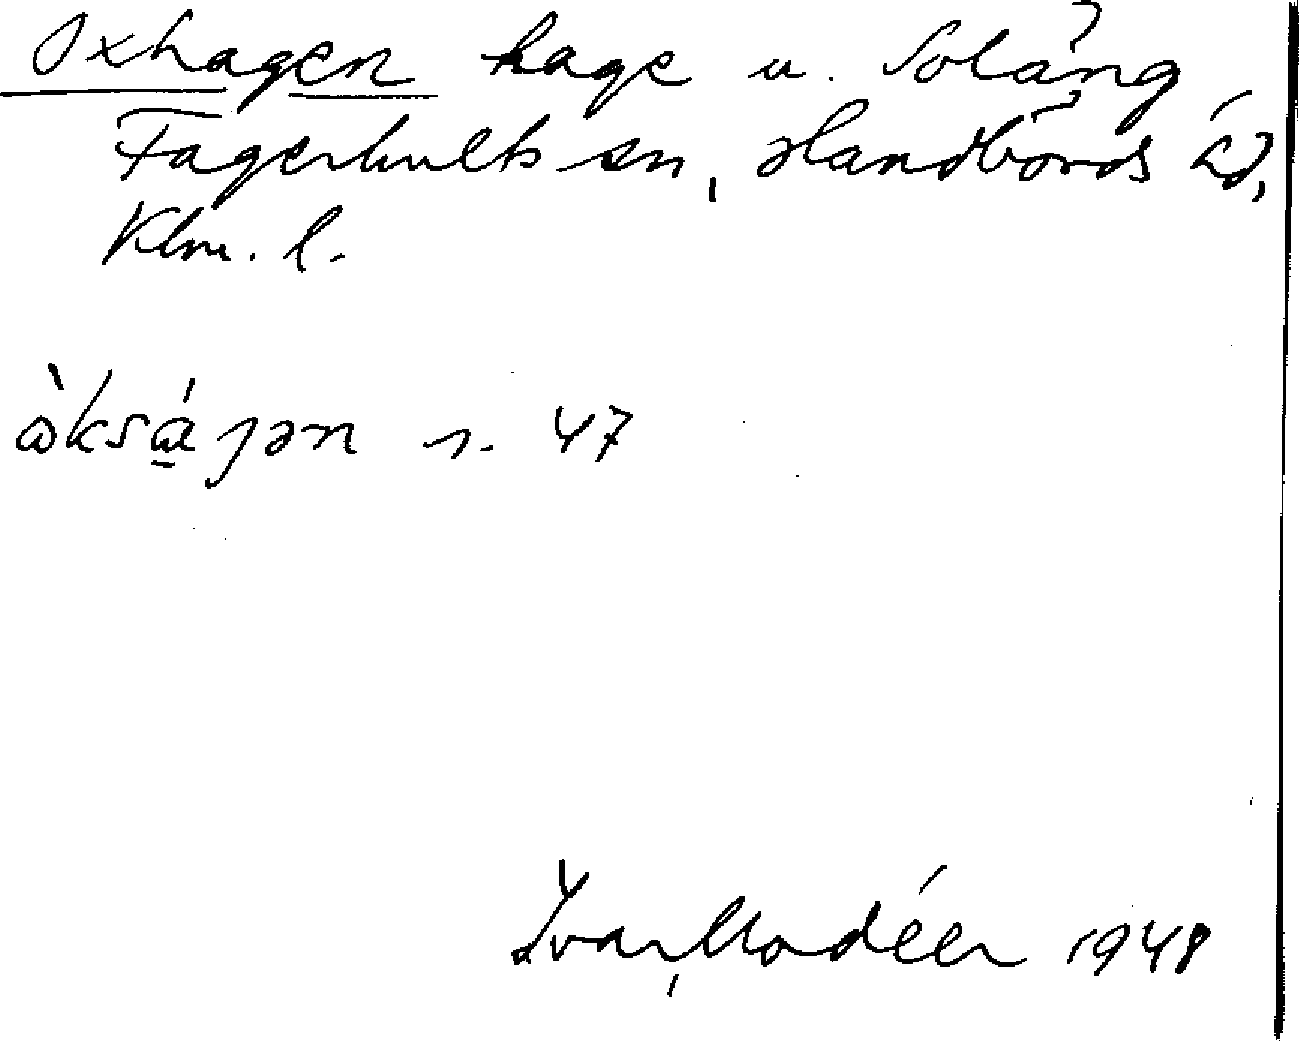 Oxhagen hage u. Soläng
Fagerhults sn, Handbörds hd,
Klm. l.
ὼksɑ́ȷən s. 47
Ivar Modéer 1948